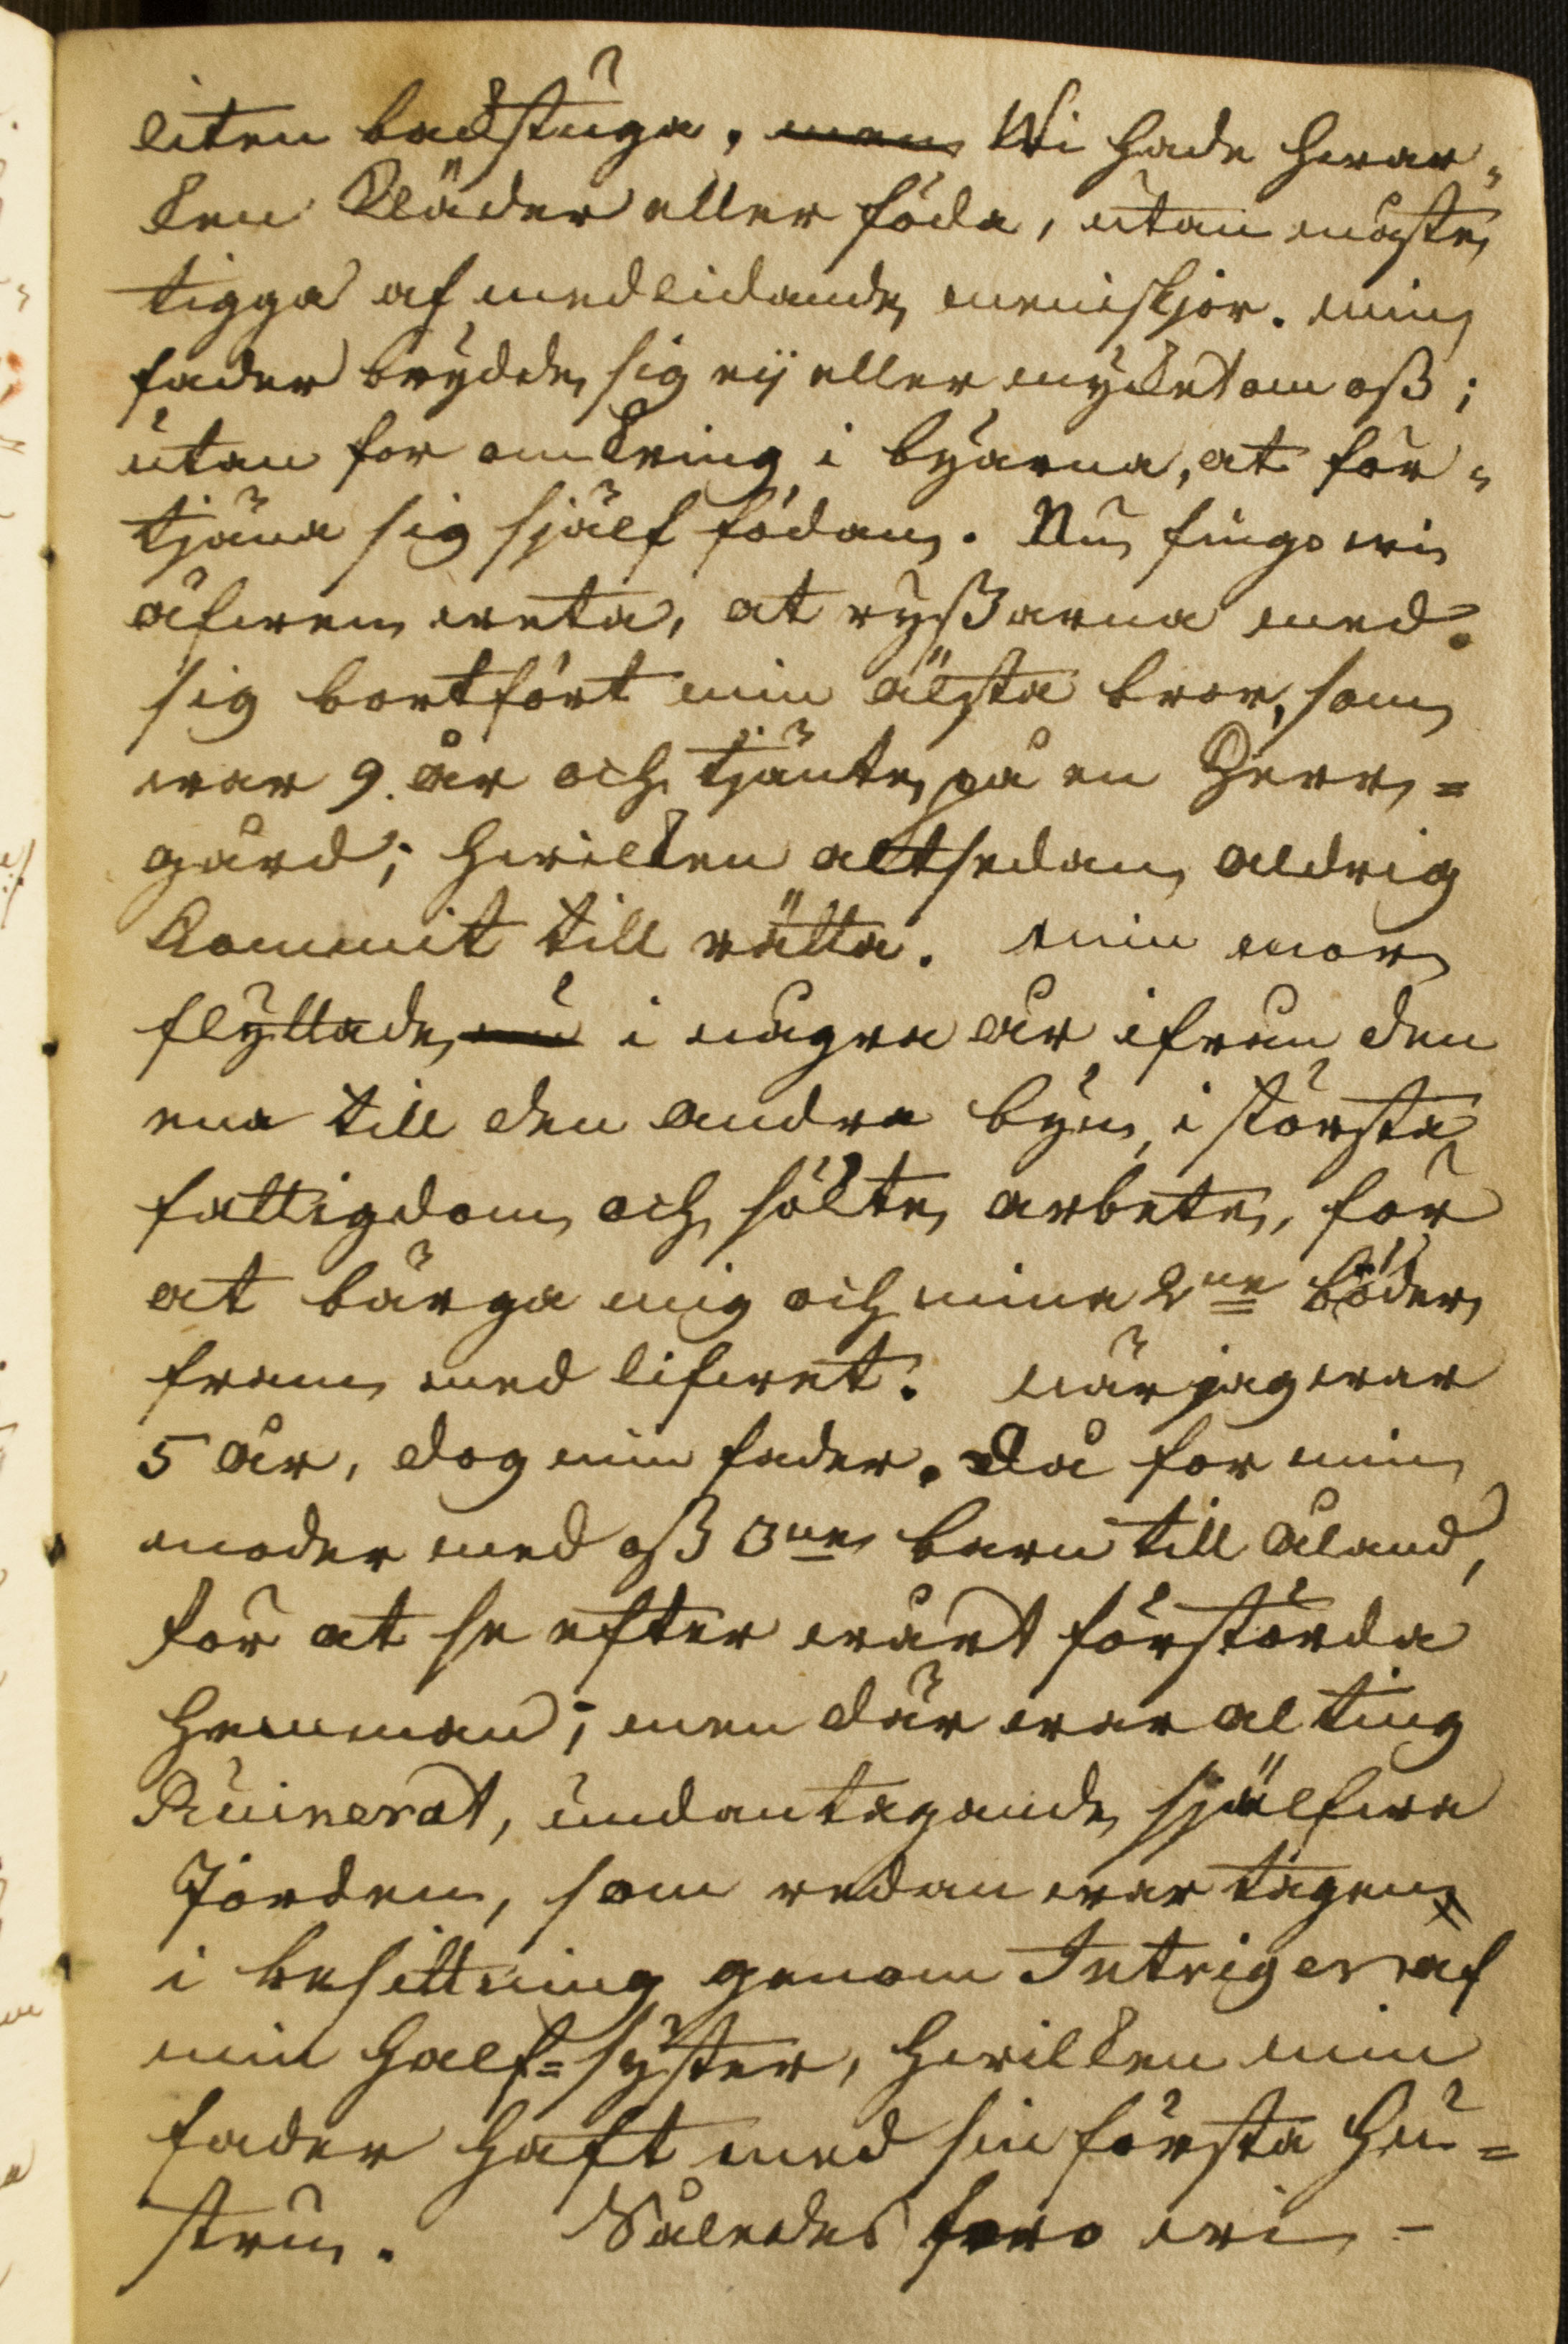 liten backstuga, men Wi hade hwar„
ken Kläder eller föda, utan måste
tigga af medlidande meniskjor. min
fader brydde sig eij eller mycket om oß;
utan for omkring i byarna, at för„
tjäna sig sjelf födan. Nu fingo wi
äfwen weta, at ryßarna med
sig bortfört min älsta bror, som
war 9. år och tjänte på en Herr=
gård; hwilken altsedan aldrig
Kommit till rätta. min mor
flyttade nu i några år ifrån den
ena till den andra byn, i största
fattigdom och sökte arbete, för
at bärga mig och mina 2ne bröder
fram med lifwet. när jag war
5 år, dog min fader. Då for min
moder med oß 3ne barn till Åland,
för at se efter wårt förstörda
hemman; men där war alting
Ruinerat, undantagande sjelfwa
Jorden, som redan war tagen
i besittning genom Intriger af
min half=syster, hwilken min
fader haft med sin första hu=
stru. Således foro wi –